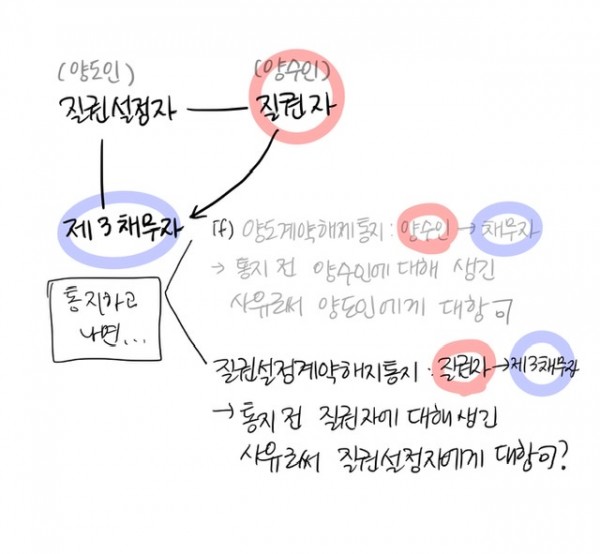 (양도인) (양수인)
질권설정자 질권자
제3채무자
통지하고
나면...
If) 양도계약해제통지: 양수인 → 채무자
→ 통지 전 양수인에 대해 생긴
사유로써 양도인에게 대항 可
질권설정계약해지통지: 질권자 → 제3채무자
→ 통지 전 질권자에 대해 생긴
사유로써 질권설정자에게 대항 可?